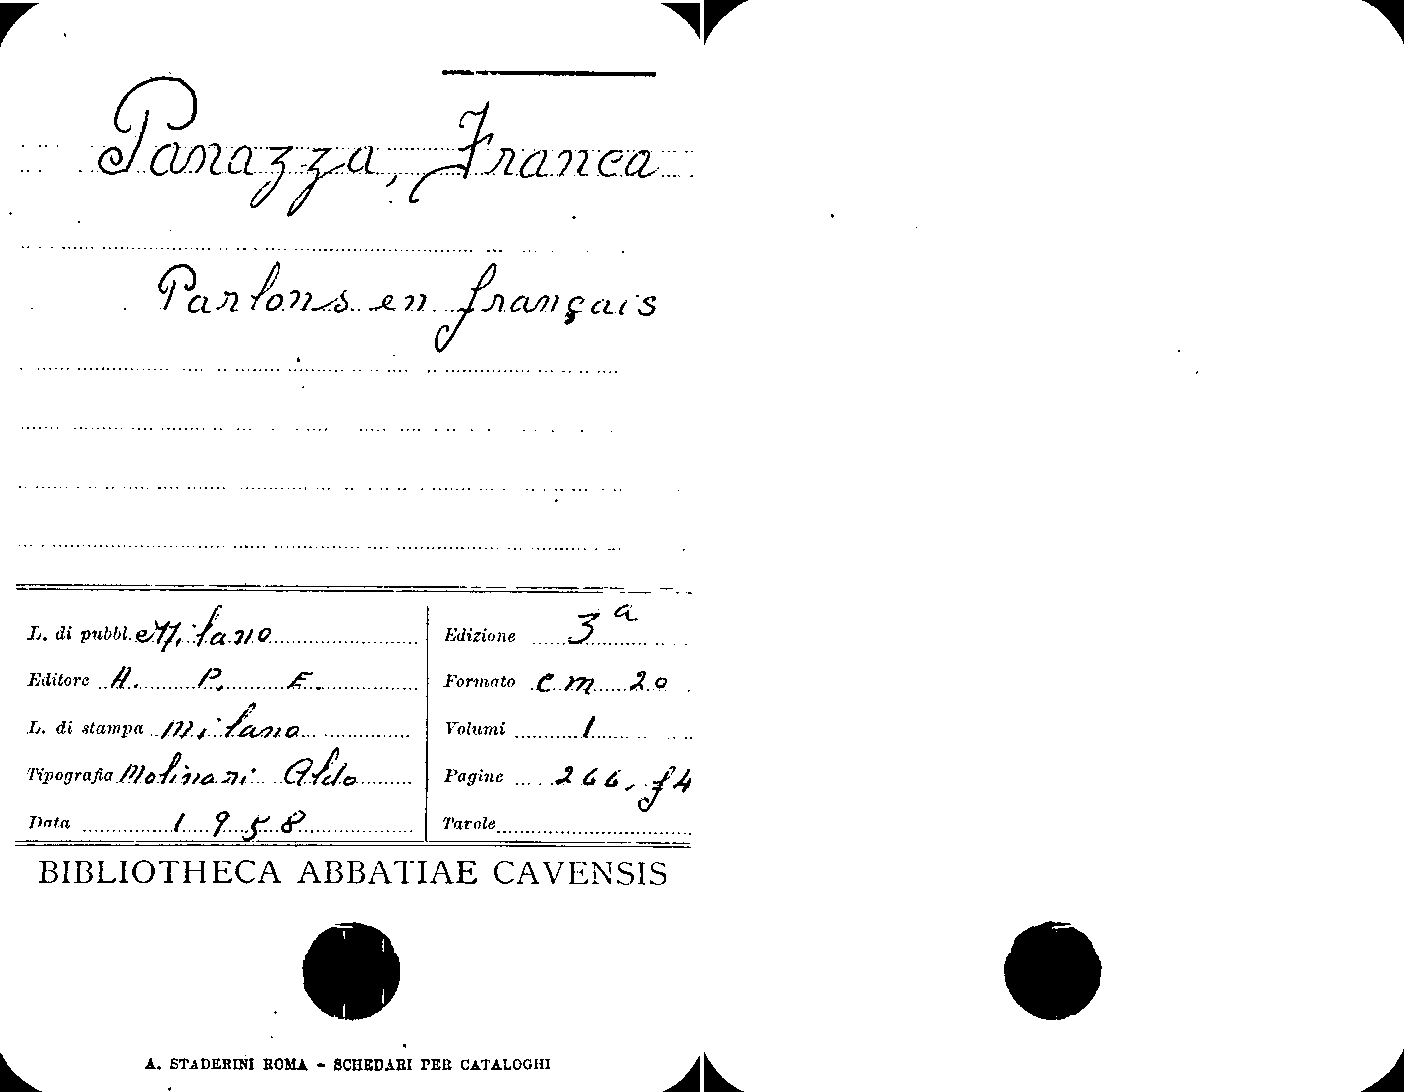 Panazza, Franca
Parlons en français
L. di pubbl. Milano
Editore A. P. E.
L. di stampa Milano
Tipografia Molinari Aldo
Data 1958
Edizione 3ª
Formato cm 20
Volumi 1
Pagine 266, f4
Tavole
BIBLIOTHECA ABBATIAE CAVENSIS
A. STADERINI ROMA - SCHEDARI PER CATALOGHI